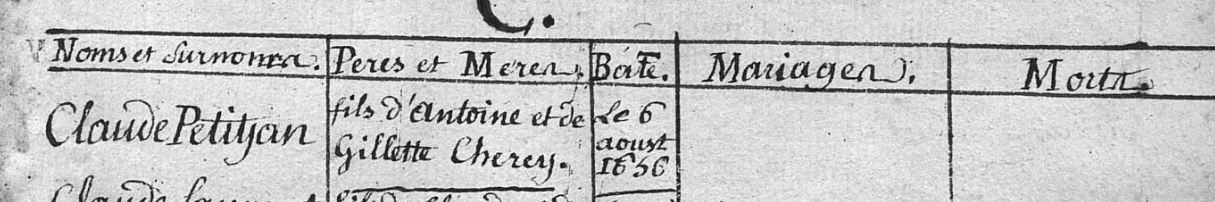 C.
Noms et Surnoms. Peres et Meres. Batē. Mariages. Morts.
Claude Petitjan fils d'Antoine et de Gillette Cherey. Le 6 aoust 1656